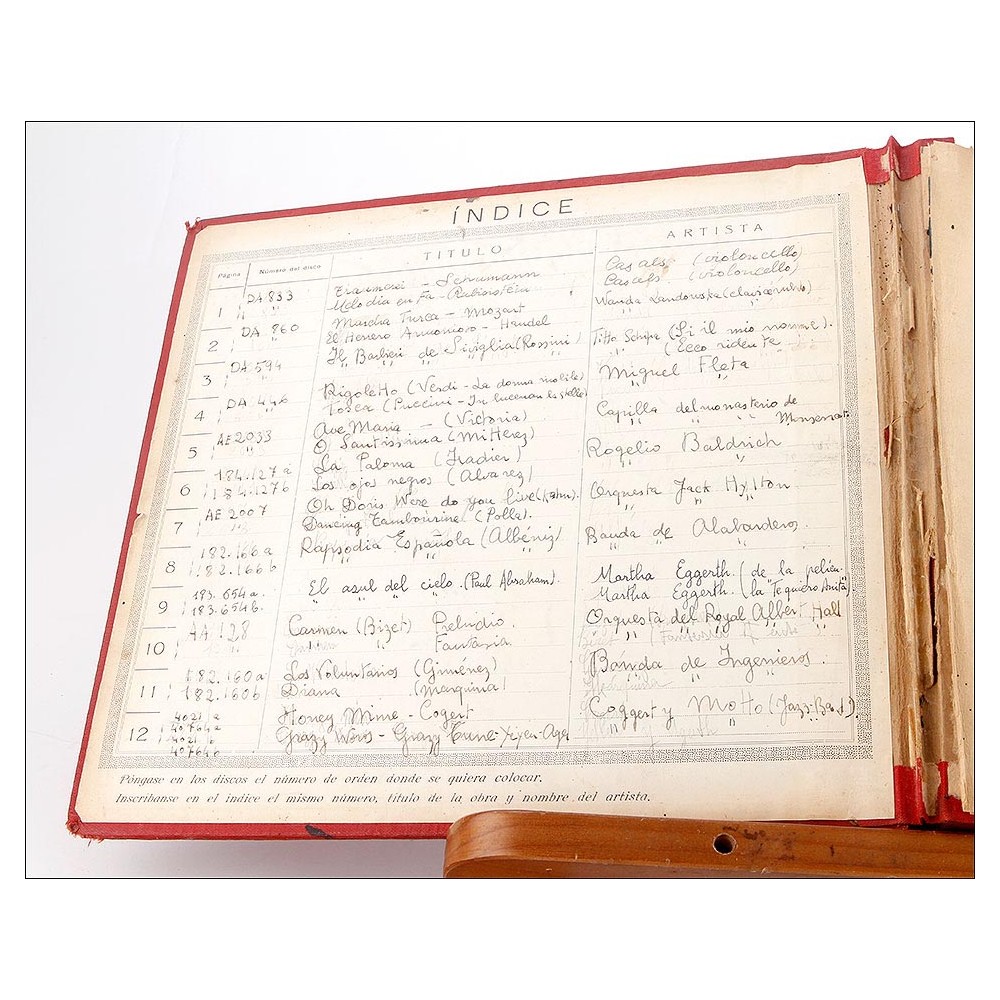 ÍNDICE
Página Número del disco TITULO ARTISTA
1 DA 833 Traumerei - Schumann Casals (violoncello)
" " Melodia en Fa - Rubinstein Casals (violoncello)
2 DA 860 Marcha Turca - Mozart Wanda Landowska
" " El Herrero Armonioso - Handel
3 DA 594 Il Barbieri de Siviglia (Rossini) Titto Schipa (Si il mio nomme).
" " " " " " (Ecco ridente
4 DA 446 Rigoletto (Verdi - La donna mobile) Miguel Fleta
" " Tosca (Puccini - " "
5 AE 2033 Ave Maria - (Victoria) Capilla del monasterio de
" " O Santissima Montserrat
6 184.127 a La Paloma (Iradier) Rogelio Baldrich
184.127 b Los ojos negros (Alvarez) " "
7 AE 2007 Oh Doris Were do you live Orquesta Jack Hylton
" " Dancing Tambourine (Polla). " "
8 182.166 a Rapsodia Española (Albéniz) Banda de Alabarderos.
182.166 b " " " " " "
9 183.654 a. El azul del cielo. (Paul Abraham). Martha Eggerth. (de la pelicu-
183.654 b. " " " " Martha Eggerth. (la Te quiero Anita)
10 AA 128 Carmen (Bizet) Preludio. Orquesta del Royal Albert Hall
Fantasia. " " " "
11 182.160 a Los Voluntarios (Giménez) Banda de Ingenieros.
182.160 b Diana (Marquina) " " "
12 4021 a Honey Mine - Cogert Coggert y Motto (Jazz-Band).
40764 a
4021 b Grazy Words - Grazy Tune " "
407646
Póngase en los discos el número de orden donde se quiera colocar.
Inscríbanse en el índice el mismo número, título de la obra y nombre del artista.